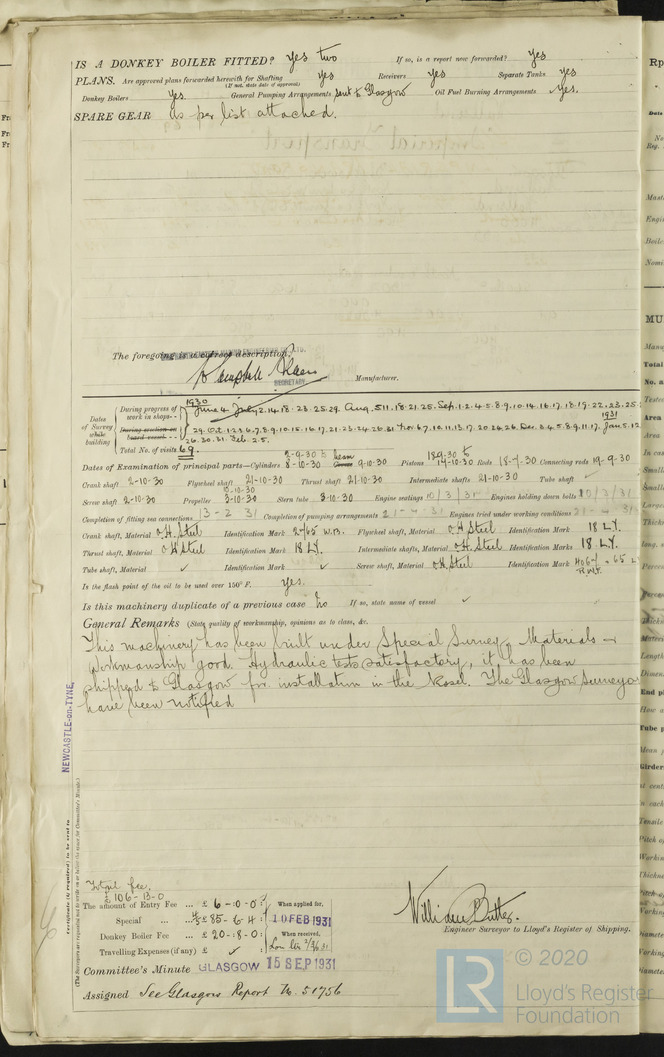 IS A DONKEY BOILER FITTED? yes two If so, is a report now forwarded? yes
PLANS. Are approved plans forwarded herewith for Shafting yes Receivers yes Separate Tanks yes
(If not, state date of approval)
Donkey Boilers yes General Pumping Arrangements sent to Glasgow Oil Fuel Burning Arrangements yes.
SPARE GEAR as per list attached.
The foregoing is a correct description,
SECRETARY Manufacturer.
Dates of Survey while building
During progress of work in shops--
1930
June 4 July 2.14.18.23.25.29. Aug. 5.11.18.21.25. Sep. 1.2.4.5.8.9.10.14.16.17.18.19.22.23.25
During erection on board vessel---
1931
29. Oct. 1.2.3.6.7.8.9.10.15.16.17.21.23.24.26.31 Nov 6.7.10.11.13.17.20.24.26. Dec. 3.4.5.8.9.11.17. Jan. 5.12
26.30.31. Feb. 2.5.
Total No. of visits 69.
Dates of Examination of principal parts—Cylinders 8-10-30 9-10-30 Pistons 14-10-30 Rods 18-9-30 Connecting rods 19-9-30
Crank shaft 2-10-30 Flywheel shaft 21-10-30 Thrust shaft 21-10-30 Intermediate shafts 21-10-30 Tube shaft ✓
Screw shaft 2-10-30 Propeller 3-10-30 Stern tube 3-10-30 Engine seatings 10/3/31 Engines holding down bolts 10/3/31
Completion of fitting sea connections 13-2-31 Completion of pumping arrangements 21-4-31 Engines tried under working conditions 21-4-31
Crank shaft, Material O.H. Steel Identification Mark 2765 W.B. Flywheel shaft, Material O.H. Steel Identification Mark 18 L.Y.
Thrust shaft, Material O.H. Steel Identification Mark 18 L.Y. Intermediate shafts, Material O.H. Steel Identification Marks 18 L.Y.
Tube shaft, Material ✓ Identification Mark ✓ Screw shaft, Material O.H. Steel Identification Mark
Is the flash point of the oil to be used over 150° F. yes.
Is this machinery duplicate of a previous case No If so, state name of vessel ✓
General Remarks (State quality of workmanship, opinions as to class, &c.
This machinery has been built under Special Survey, Materials &
Workmanship good. Hydraulic tests satisfactory, it has been
shipped to Glasgow for installation in the Vessel. The Glasgow Surveyors
have been notified
NEWCASTLE-on-TYNE
Certificate (if required) to be sent to
(The Surveyors are requested not to write on or below the space for Committee's Minute.)
Total fee.
£106-13-0
The amount of Entry Fee ... £ 6-0-0 When applied for,
Special ... £ 85-6-4 10 FEB 1931
Donkey Boiler Fee ... £ 20-8-0 When received,
Travelling Expenses (if any) £ ✓
William Butler.
Engineer Surveyor to Lloyd's Register of Shipping.
Committee's Minute GLASGOW 15 SEP 1931
Assigned See Glasgow Report No. 51756
LR
© 2020
Lloyd's Register
Foundation